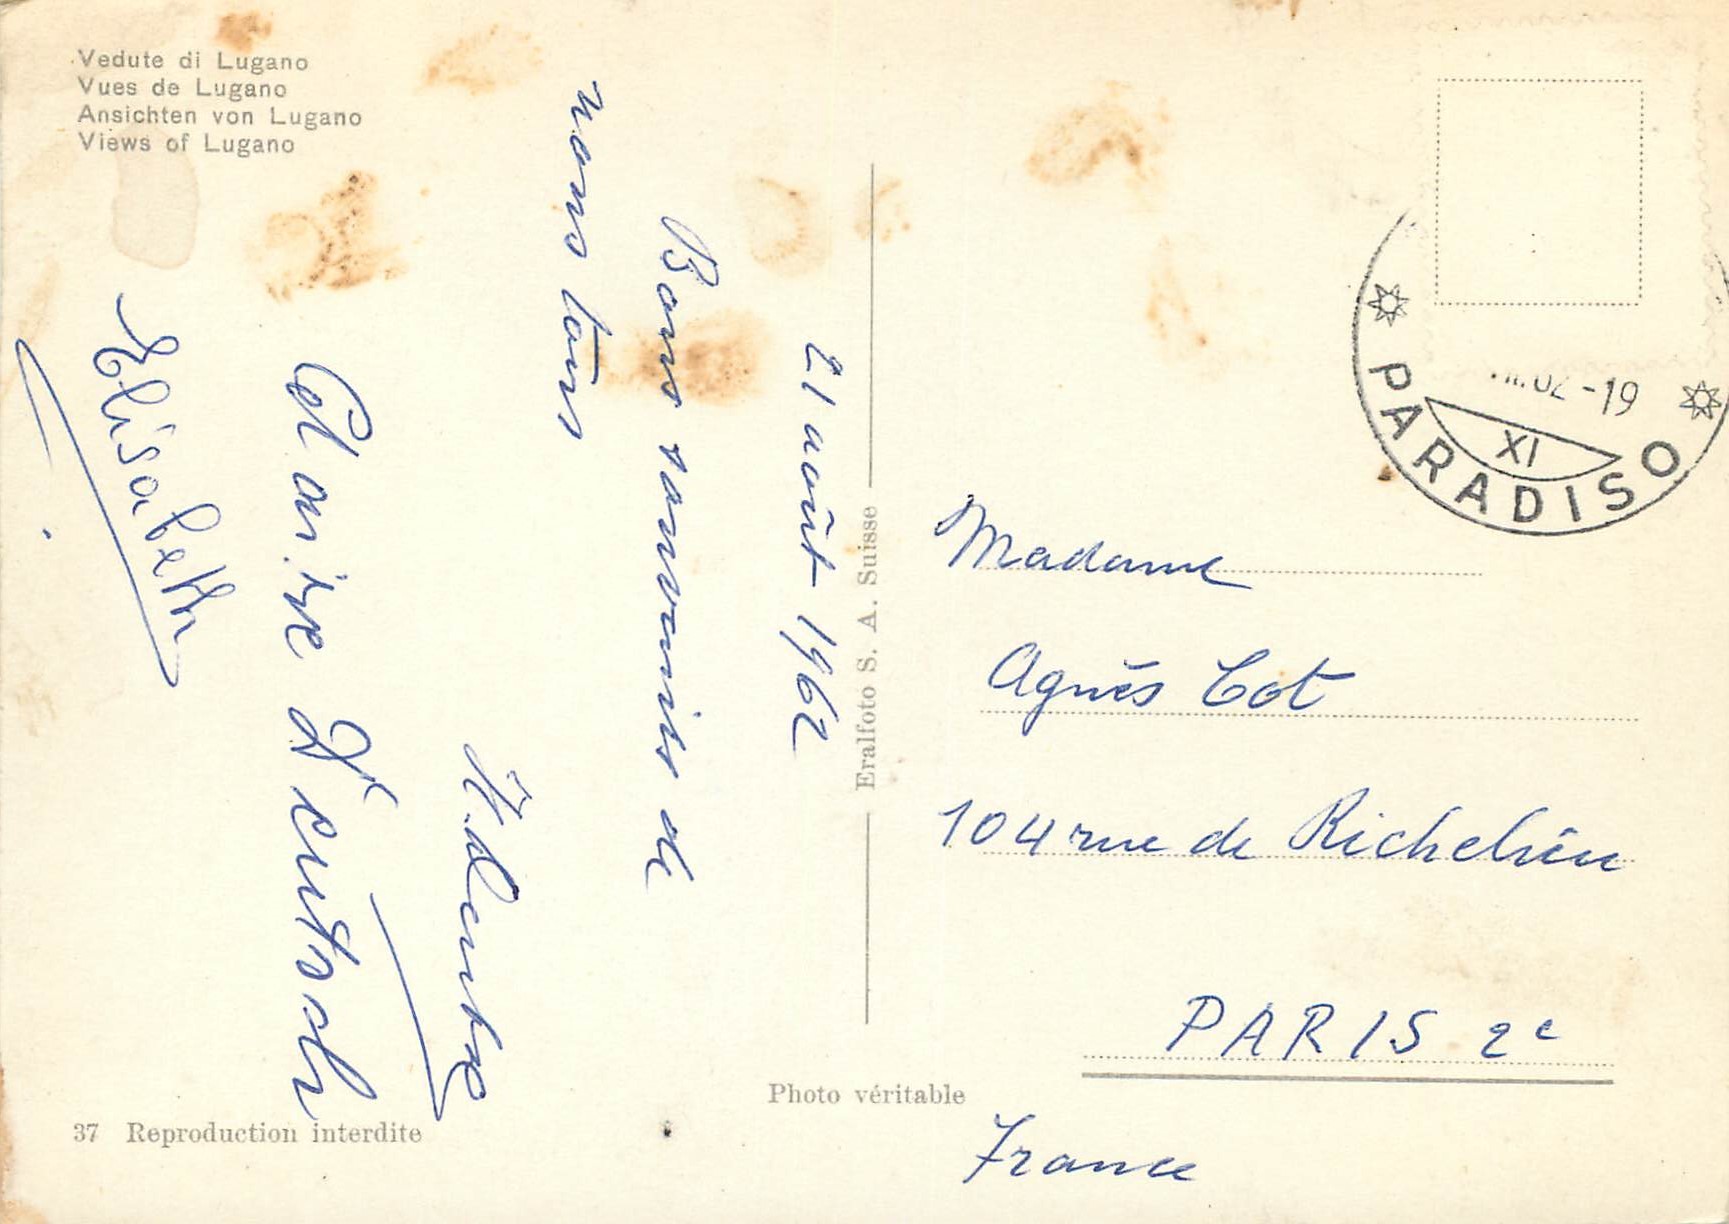 Vedute di Lugano
Vues de Lugano
Ansichten von Lugano
Views of Lugano
21 août 1962
Bons souvenirs de
nous tous
Elisabeth
Eralfoto S. A. Suisse
PARADISO
XI
-19
Madame
Agnès Cot
104 rue de Richelieu
PARIS 2e
France
Photo véritable
37 Reproduction interdite